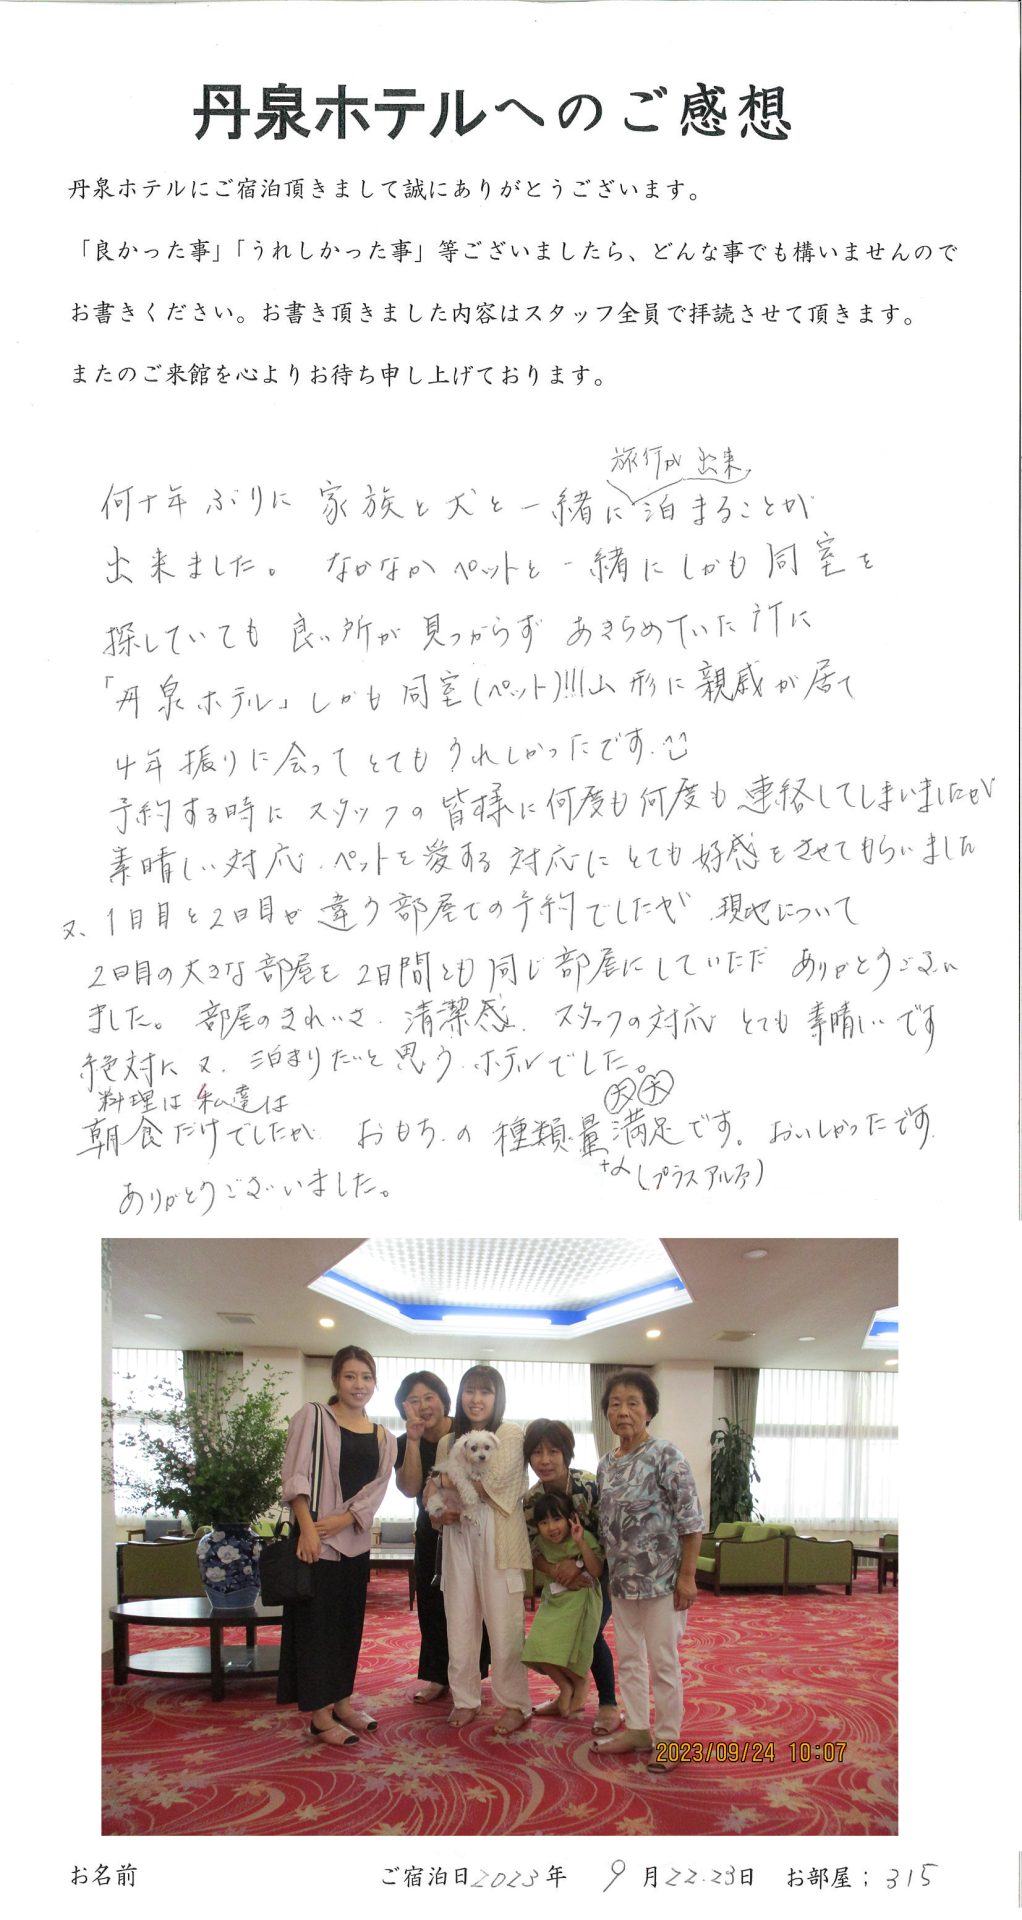 丹泉ホテルへのご感想
丹泉ホテルにご宿泊頂きまして誠にありがとうございます。
「良かった事」「うれしかった事」等ございましたら、どんな事でも構いませんので
お書きください。お書き頂きました内容はスタッフ全員で拝読させて頂きます。
またのご来館を心よりお待ち申し上げております。
旅行が出来、
何十年ぶりに家族と犬と一緒に泊まることが
出来ました。なかなかペットと一緒にしかも同室を
探していても良い所が見つからずあきらめていた所に
「丹泉ホテル」しかも同室(ペット)!!!山形に親戚が居て
4年振りに会ってとてもうれしかったです.
予約する時にスタッフの皆様に何度も何度も連絡してしまいましたが
素晴しい対応、ペットを愛する対応にとても好感をさせてもらいました
又、1日目と2日目が違う部屋での予約でしたが、現地について
2日目の大きな部屋を2日間とも同じ部屋にしていただありがとうござい
ました。部屋のきれいさ、清潔感、スタッフの対応とても素晴しいです
絶対に又、泊まりたいと思うホテルでした。
料理は私達は
朝食だけでしたが、おもちの種類、量大大満足です。おいしかったです.
+α(プラスアルファ)
ありがとうございました。
2023/09/24 10:07
お名前 ご宿泊日2023年 9月22.23日 お部屋；315